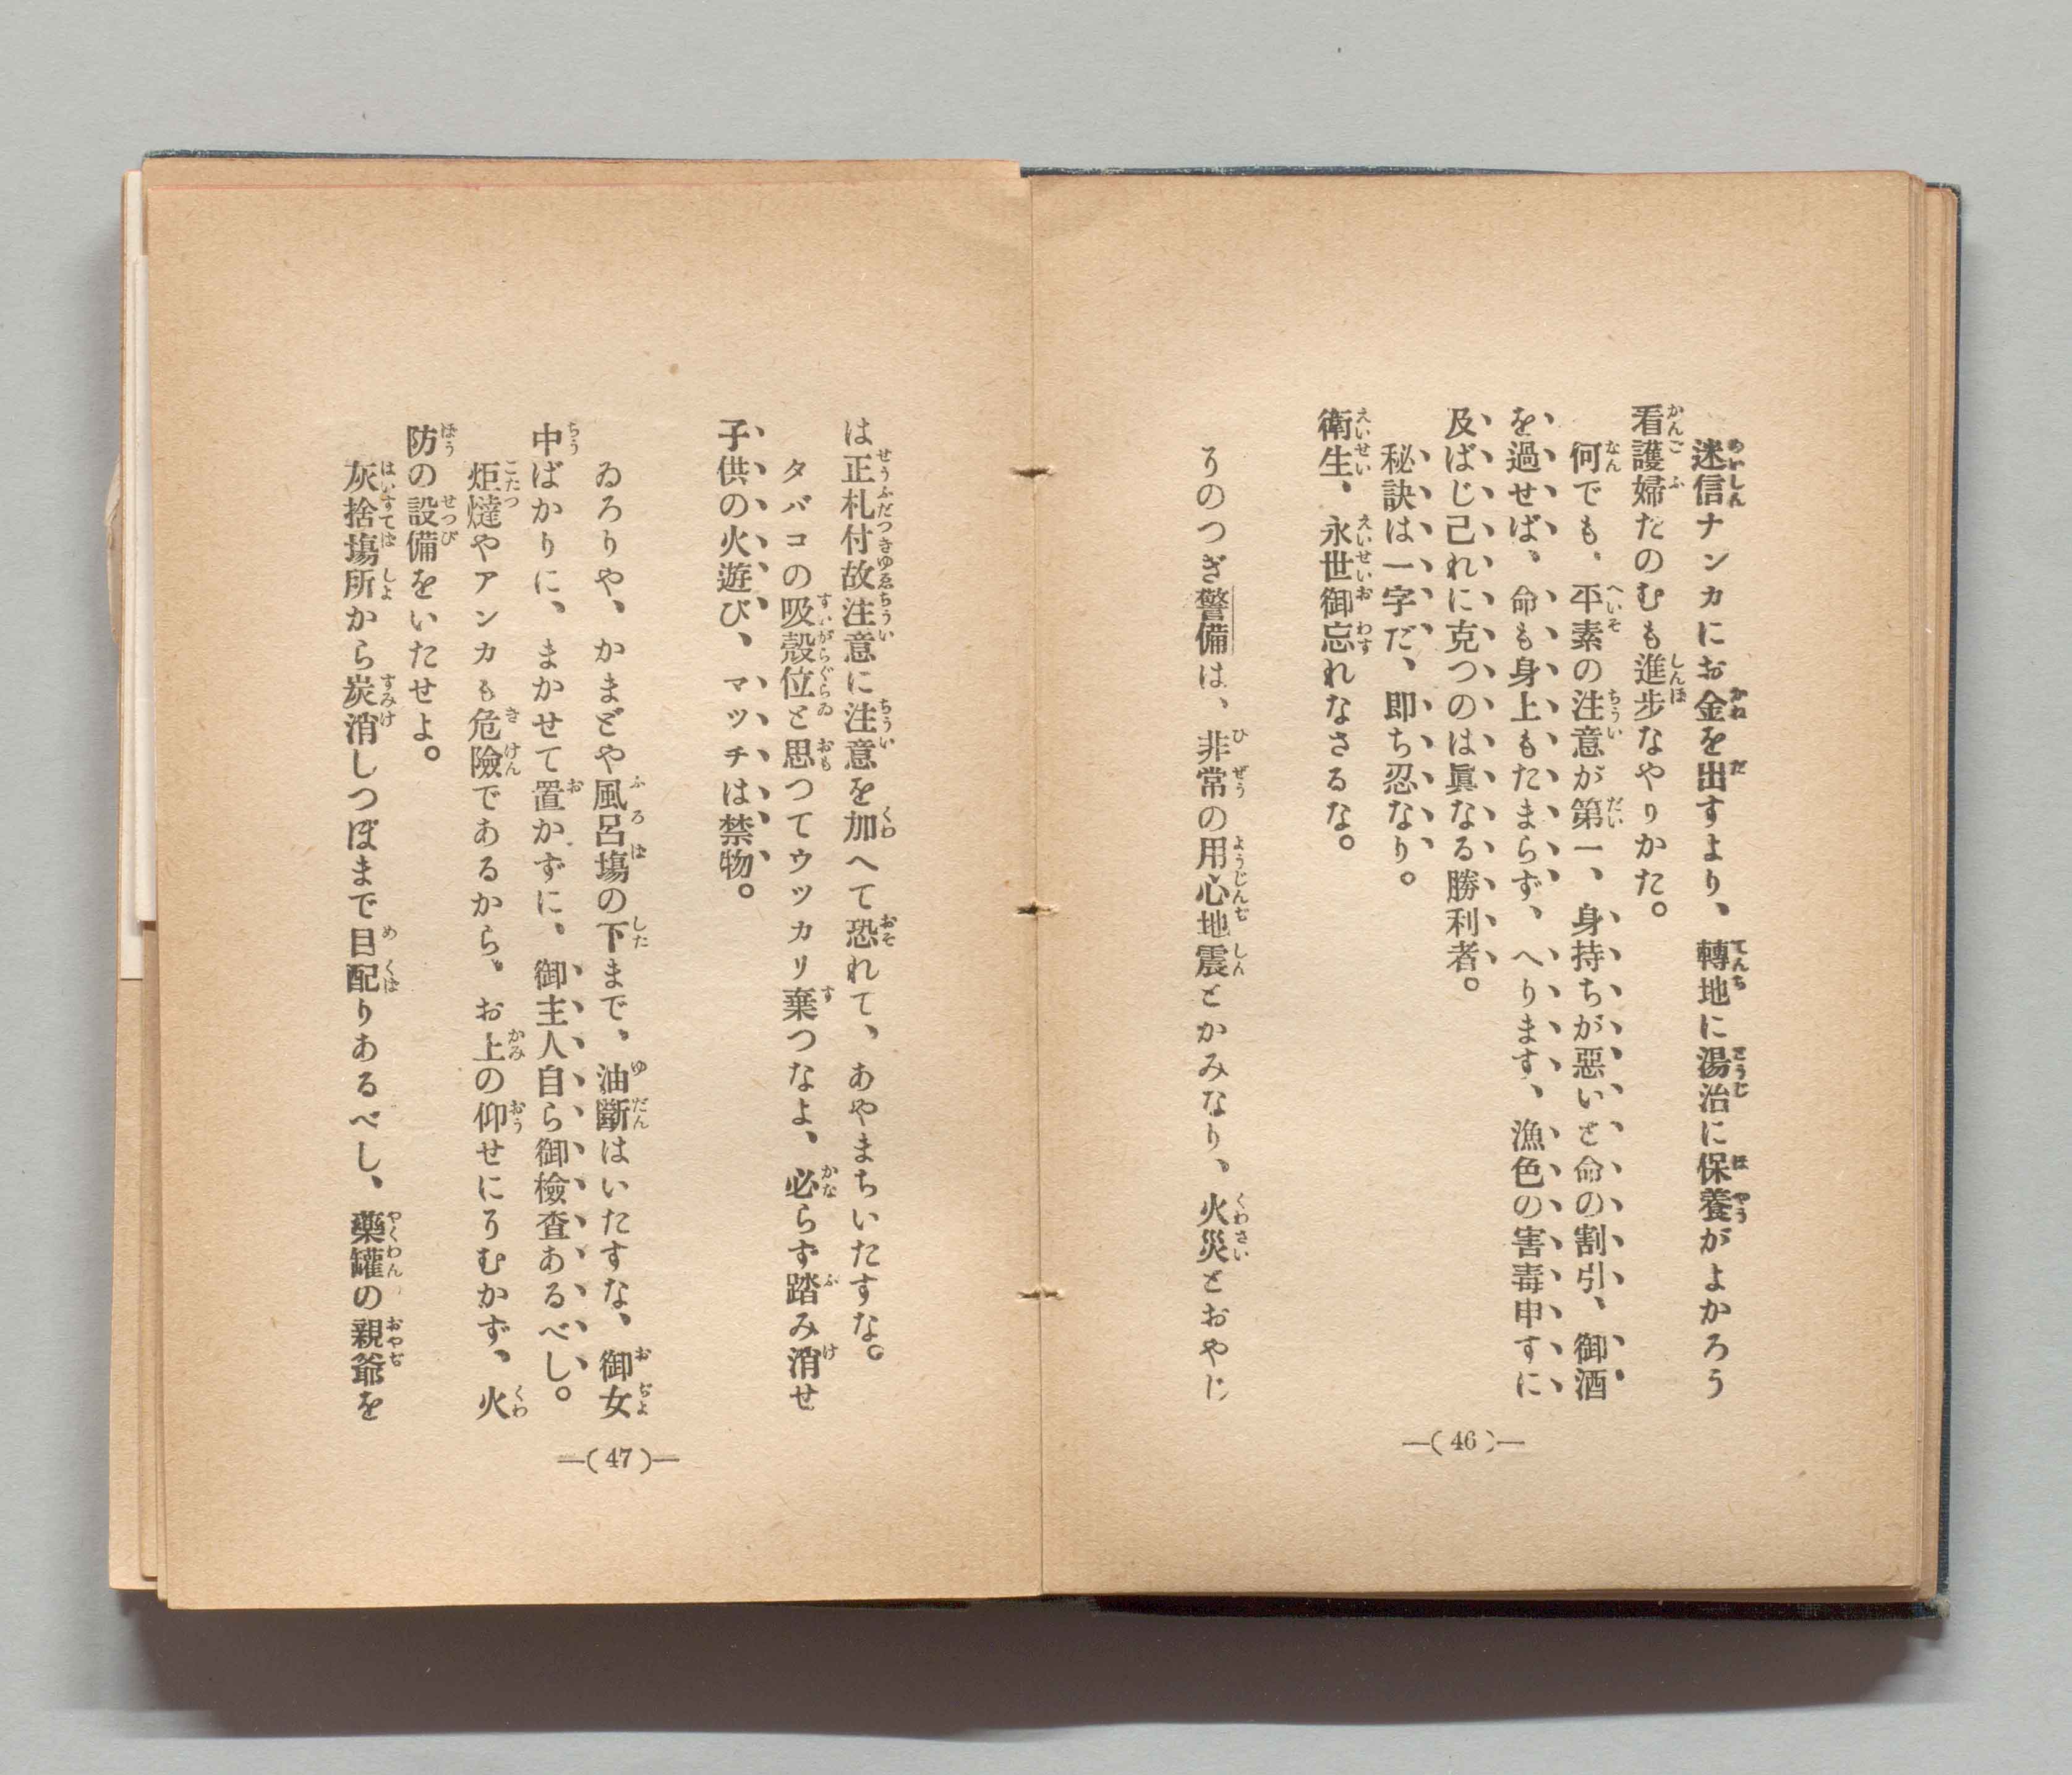 迷信ナンカにお金を出すより、轉地に湯治に保養がよかろう
看護婦たのむも進步なやりかた。
何でも、平素の注意が第一、身持ちが惡いと命の割引、御酒
を過せば、命も身上もたまらず、へります、漁色の害毒申すに
及ばじ己れに克つのは眞なる勝利者。
秘訣は一字だ、即ち忍なり。
衛生、永世御忘れなさるな。
そのつぎ警備は、非常の用心地震とかみなり、火災とおやじ
—(46)—
は正札付故注意に注意を加へて恐れて、あやまちいたすな。
タバコの吸殼位と思つてウッカリ棄つなよ、必らず踏み消せ
子供の火遊び、マッチは禁物。
ゐろりや、かまどや風呂塲の下まで、油斷はいたすな、御女
中ばかりに、まかせて置かずに、御主人自ら御檢査あるべし。
炬燵やアンカも危險であるから、お上の仰せにそむかず、火
防の設備をいたせよ。
灰捨塲所から炭消しつぼまで目配りあるべし、藥罐の親爺を
—(47)—